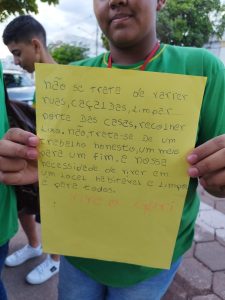 não se trata de varrer
ruas, calçadas, limpar
parte das casas, recolher
lixo. não, trata-se de um
trabalho honesto, um meio
para um fim, a nossa
necessidade de viver em
um local habitável e limpo
e para todos.